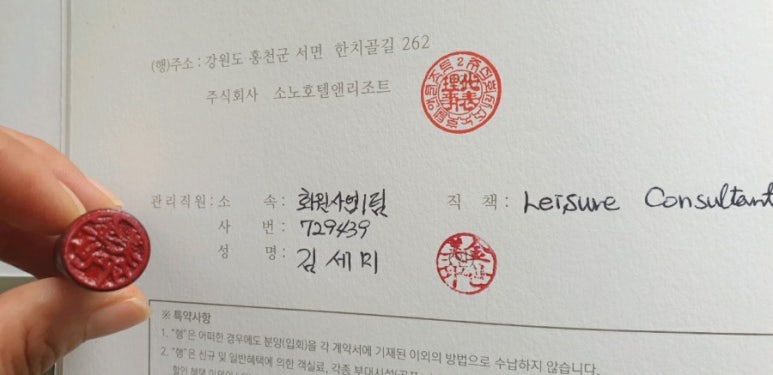 (행)주소 : 강원도 홍천군 서면 한치골길 262
주식회사 소노호텔앤리조트
代表
理事
관리직원 : 소 속 : 회원사업1팀 직 책 : Leisure Consultant
사 번 : 729439
성 명 : 김세미
※ 특약사항
1. "행"은 어떠한 경우에도 분양(입회)을 각 계약서에 기재된 이외의 방법으로 수납하지 않습니다.
2. "행"은 신규 및 일반혜택에 의한 객실료, 각종 부대시설